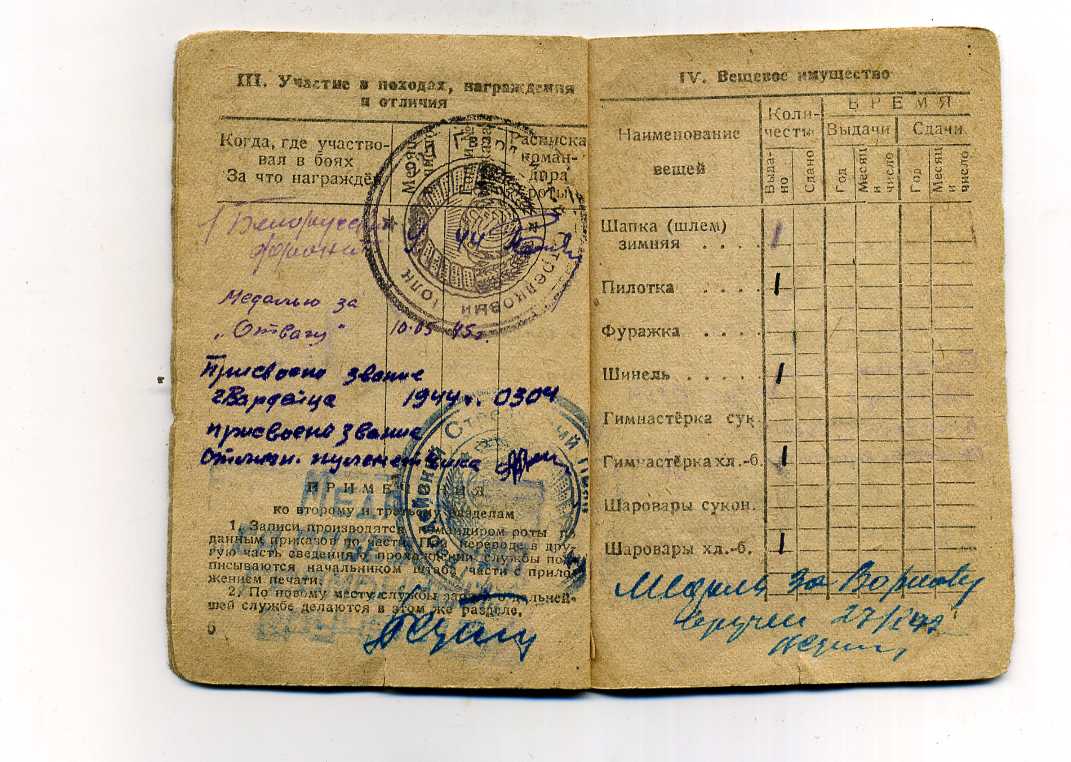 III. Участие в походах, награждения
и отличия
Когда, где участво-
вал в боях
За что награждён
Месяц
и число
Расписка
коман-
дира
роты
1 Белорусский
фронт
9 44
Медалью за
„Отвагу" 10.05 45г.
Присвоено звание
гвардейца 1944г. 0304
присвоено звание
Отличн. пулеметчика
ПРИМЕЧАНИЯ
ко второму и третьему разделам
1. Записи производятся командиром роты по
данным приказов по части. При переводе в дру-
гую часть сведения о прохождении службы под-
писываются начальником штаба части с прило-
жением печати.
2. По новому месту службы записи о дальней-
шей службе делаются в этом же разделе.
6
Стрелковый полк
IV. Вещевое имущество
Наименование
вещей
Коли-
чество
ВРЕМЯ
Выдачи
Сдачи
Выда-
но
Сдано
Год
Месяц
и
число
Год
Месяц
и
число
Шапка (шлем)
зимняя . . . . 1
Пилотка . . . . 1
Фуражка . . . .
Шинель . . . . . 1
Гимнастёрка сук.
Гимнастёрка хл.-б. 1
Шаровары сукон.
Шаровары хл.-б. 1
Медаль За Варшаву
вручен